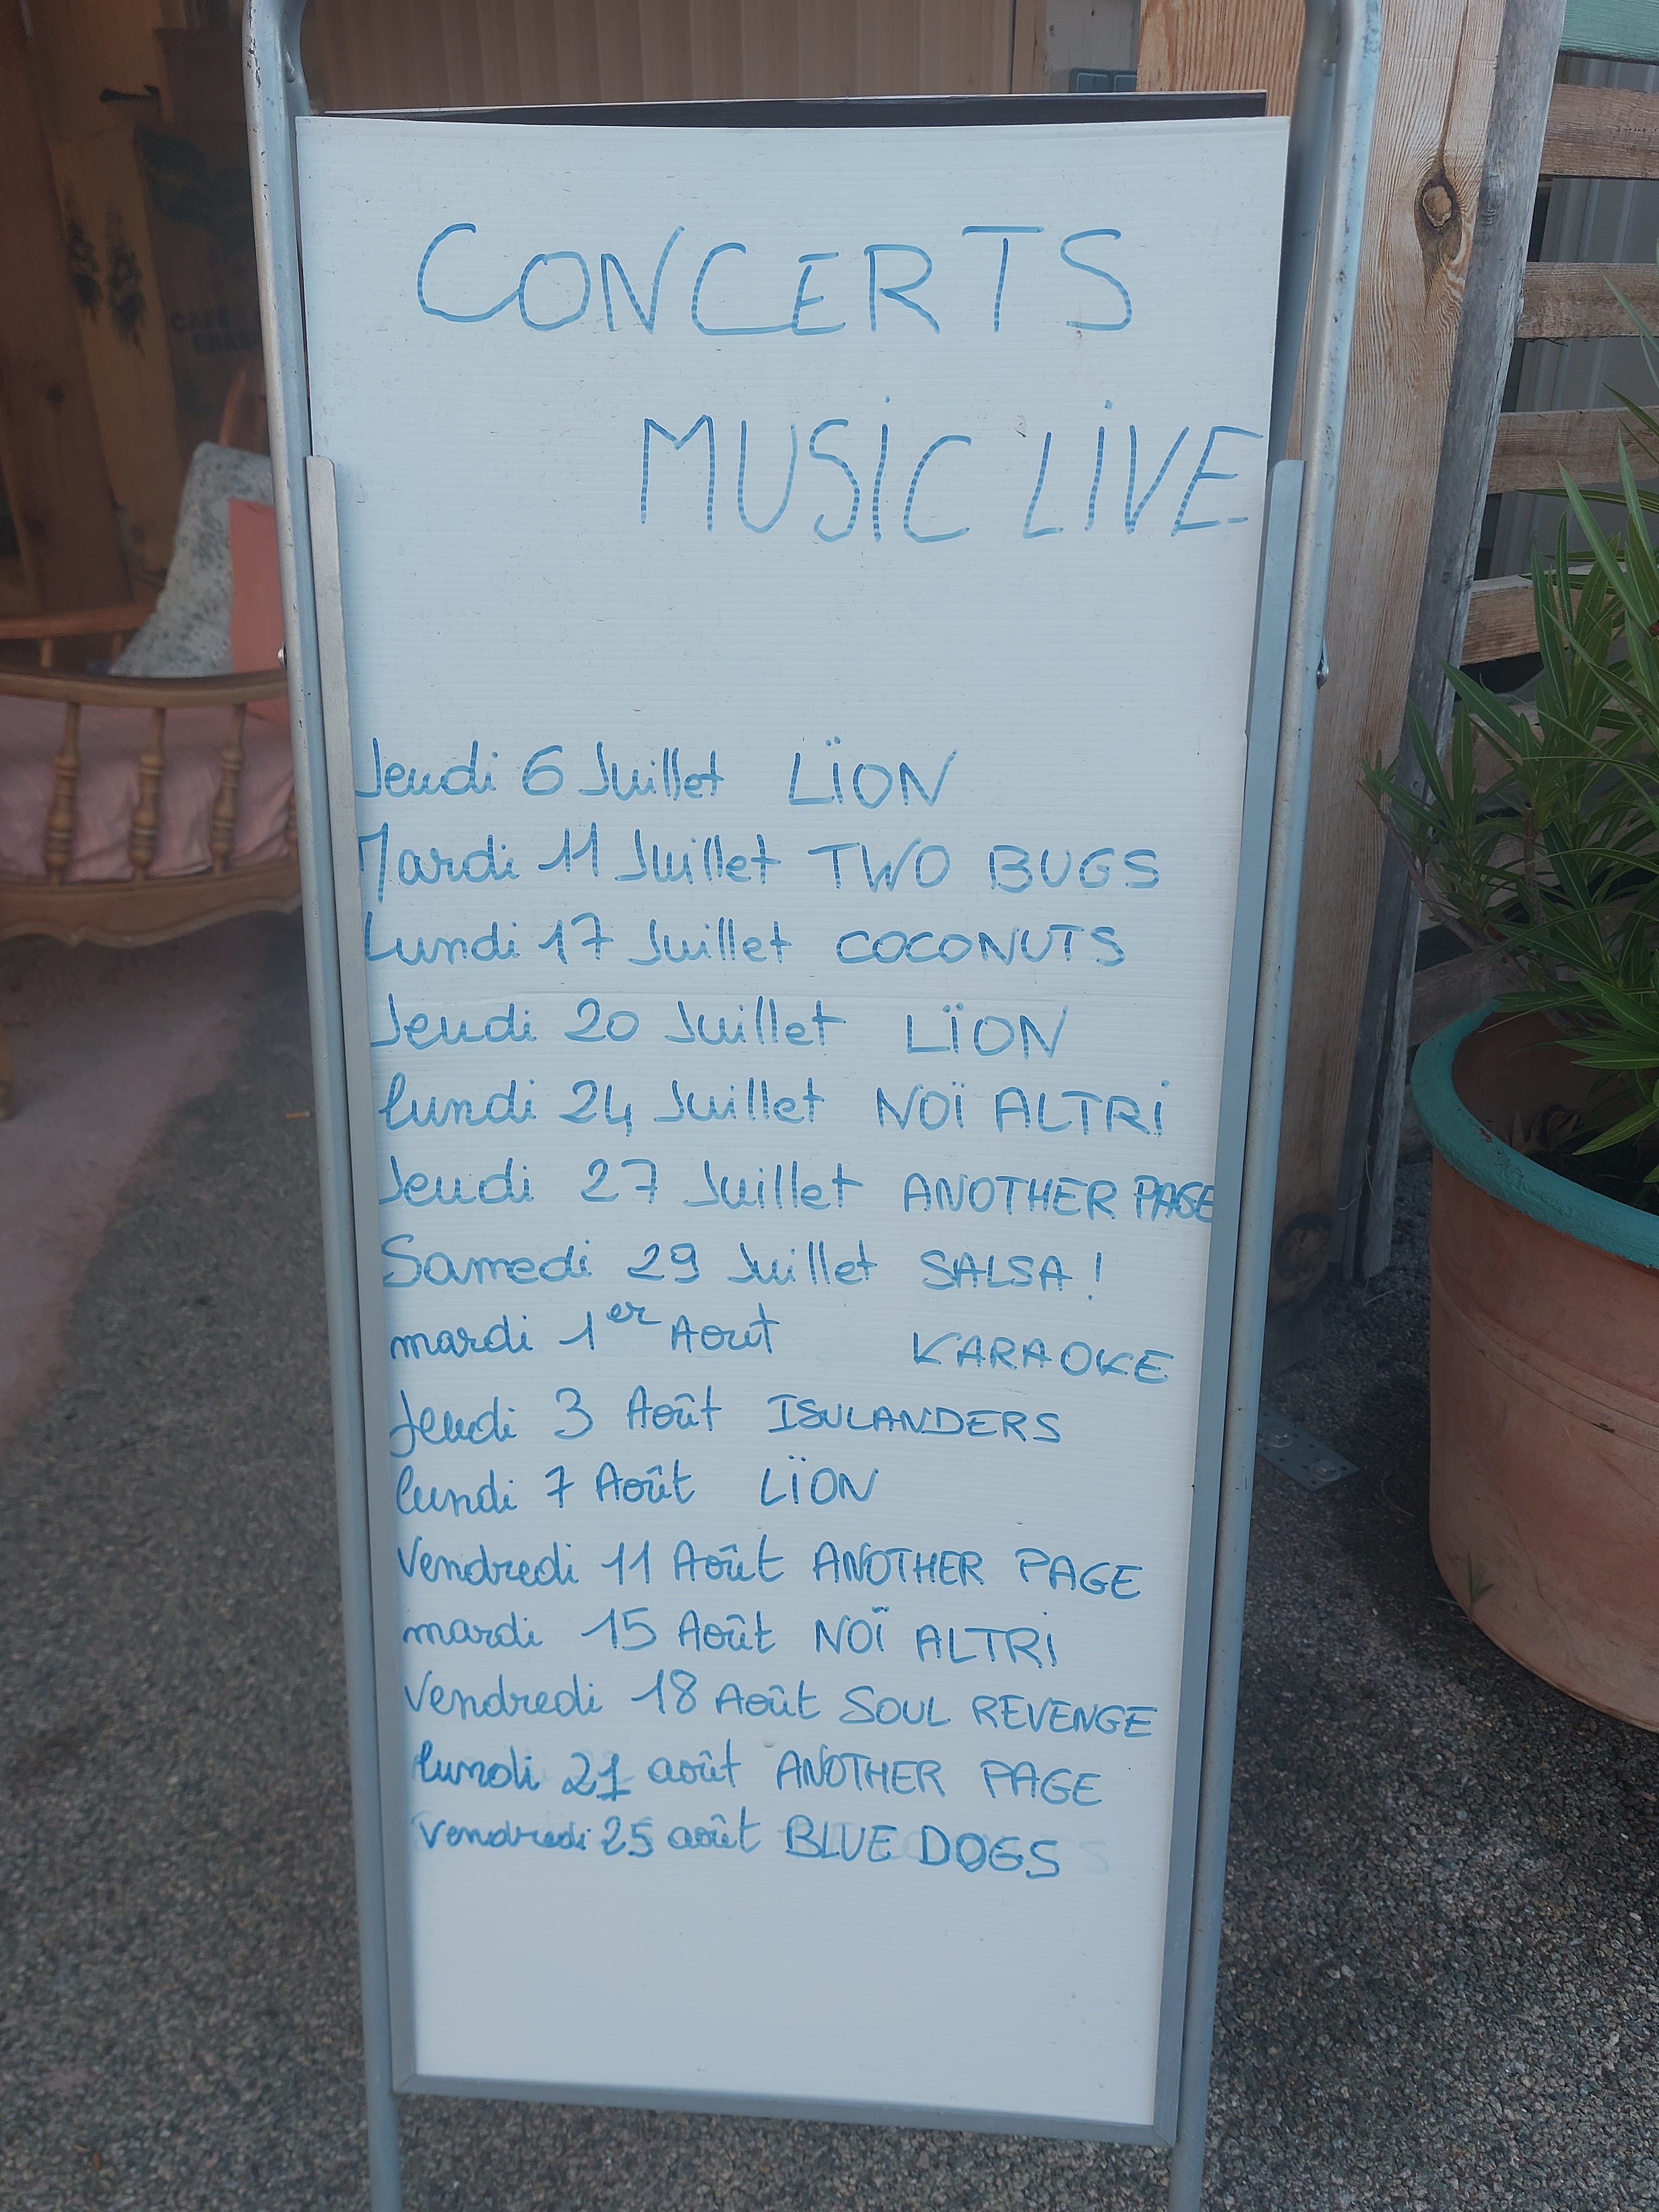 CONCERTS
MUSIC LIVE
Jeudi 6 Juillet LÏON
Mardi 11 Juillet TWO BUGS
Lundi 17 Juillet COCONUTS
Jeudi 20 Juillet LÏON
lundi 24 Juillet NOÏ ALTRI
Jeudi 27 Juillet ANOTHER PAGE
Samedi 29 Juillet SALSA !
mardi 1er Aout KARAOKE
Jeudi 3 Août ISULANDERS
lundi 7 Août LÏON
Vendredi 11 Août ANOTHER PAGE
mardi 15 Août NOÏ ALTRI
Vendredi 18 Août SOUL REVENGE
lundi 21 août ANOTHER PAGE
Vendredi 25 août BLUE DOGS